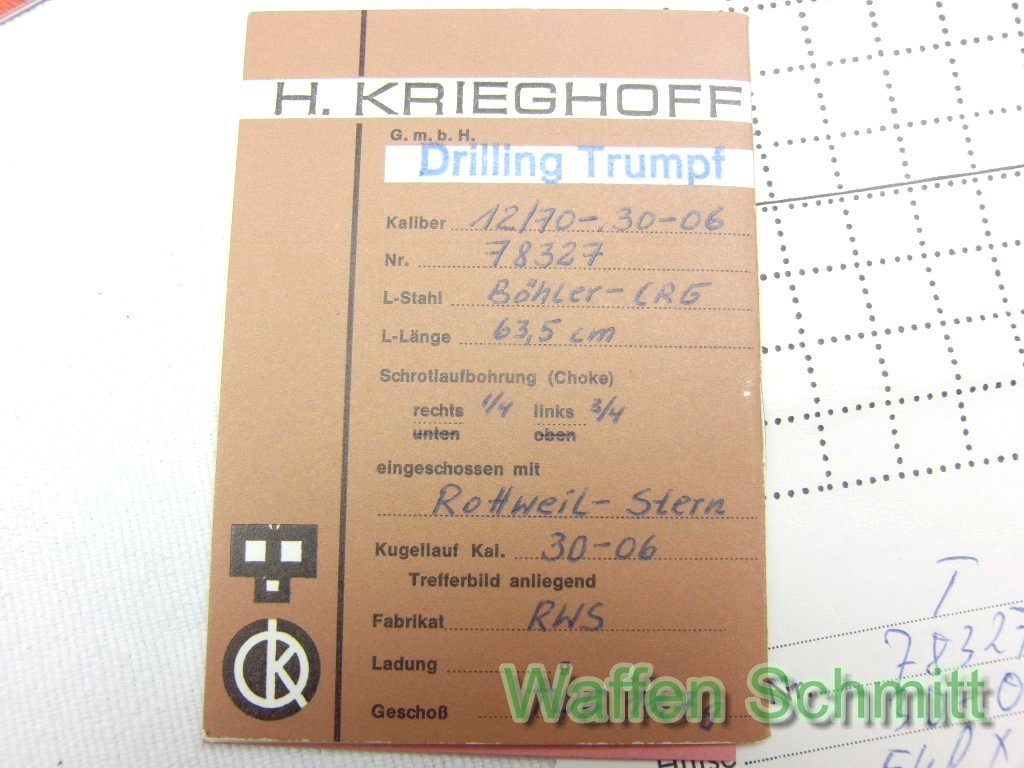 H. KRIEGHOFF
G. m. b. H.
Drilling Trumpf
Kaliber 12/70-.30-06
Nr. 78327
L-Stahl Böhler-CRG
L-Länge 63,5 cm
Schrotlaufbohrung (Choke)
rechts 1/4 links 3/4
unten oben
eingeschossen mit
Rottweil-Stern
Kugellauf Kal. 30-06
Trefferbild anliegend
Fabrikat RWS
Ladung g
Geschoß
Waffen Schmitt
T
78327